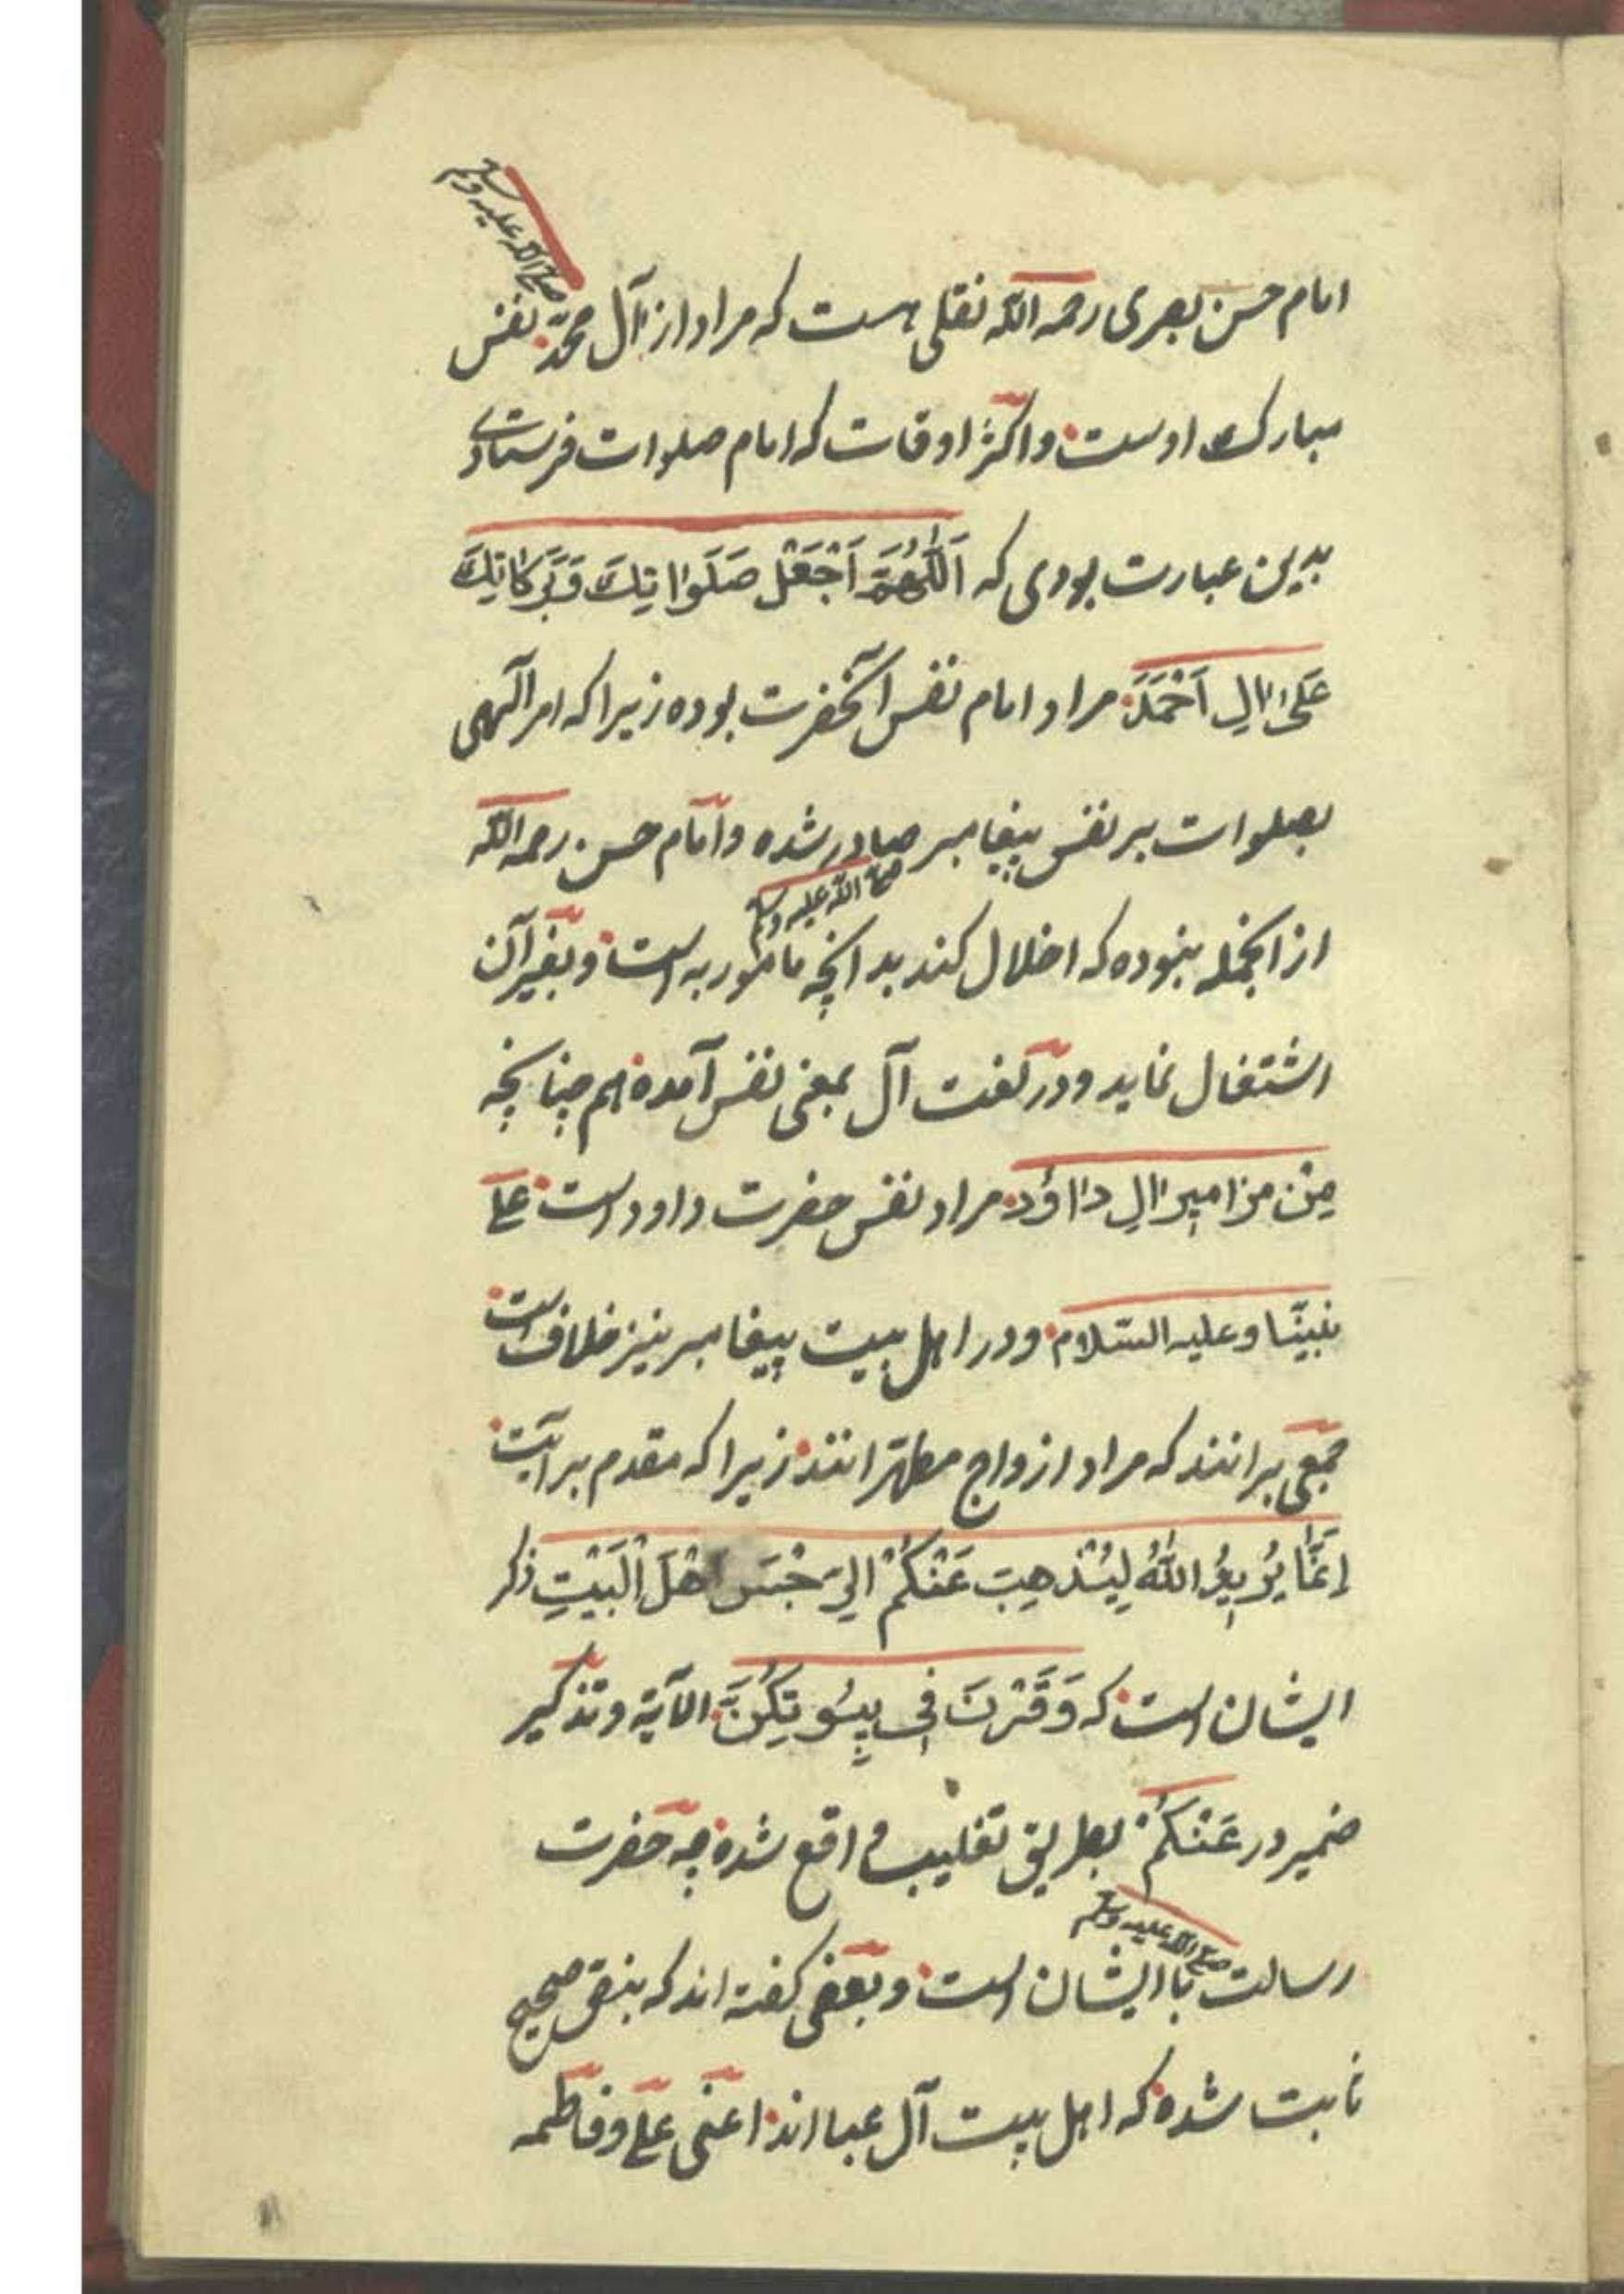 صلی الله علیه وسلم
امام حسن بصری رحمه الله نقلی هست که مراد از آل محمّد نفس
مبارک اوست و اکثر اوقات که امام صلوات فرستادی
بدین عبارت بودی که اَللّٰهُمَّ اَجْعَلْ صَلَوٰاتِكَ وَبَرَکَاتِكَ
عَلیٰ اٰلِ اَحْمَدَ مراد امام نفس آنحضرت بوده زیرا که امر الٓهی
بصلوات بر نفس پیغامبر صادر شده و امام حسن رحمه الله
صلی الله علیه وسلم
از انجمله نبوده که اخلال کند بدانچه مامور به است و بغیر آن
اشتغال نماید و در لغت آل بمعنی نفس آمده هم چنانچه
مِنْ مزامیر اٰلِ دٰاوُد مراد نفس حضرت داود است علی
نبیّنا وعلیه السّلام و در اهل بیت پیغامبر نیز خلاف است
جمعی برانند که مراد ازواج مطهّر انند زیرا که مقدم بر آیت
اِنَّمٰا یُرِیدُ اللّٰهُ لِیُذْهِبَ عَنْکُمْ الرِّجْسَ اَهْلَ الْبَیْتِ ذکر
ایشان است که وَقَرْنَ فِی بِیُوتِکُنَّ الآیة و تذکیر
ضمیر در عَنْکُمْ بطریق تغلیب واقع شده چه حضرت
صلی الله علیه وسلم
رسالت با ایشان است و بعضی گفته اند که بنقل صحیح
ثابت شده که اهل بیت آل عبا اند اعنی علی و فاطمه